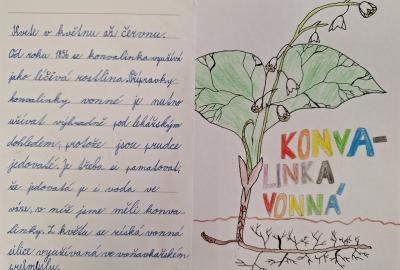 Kvete v květnu až červnu.
Od roku 1896 se konvalinka využívá
jako léčivá rostlina. Přípravky
konvalinky vonné je nutno
užívat výhradně pod lékařským
dohledem, protože jsou prudce
jedovaté. Je třeba si pamatovat,
že jedovatá je i voda ve
váze, v níž jsme měli konva-
linky. Z květu se získá vonná
silice využívaná ve voňavkářském
průmyslu.
KONVA-
LINKA
VONNÁ